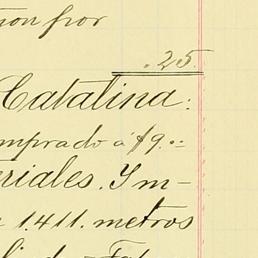 cion por
.25
Catalina:
mprado á $9.00
eriales. Ym-
e 1.411. metros